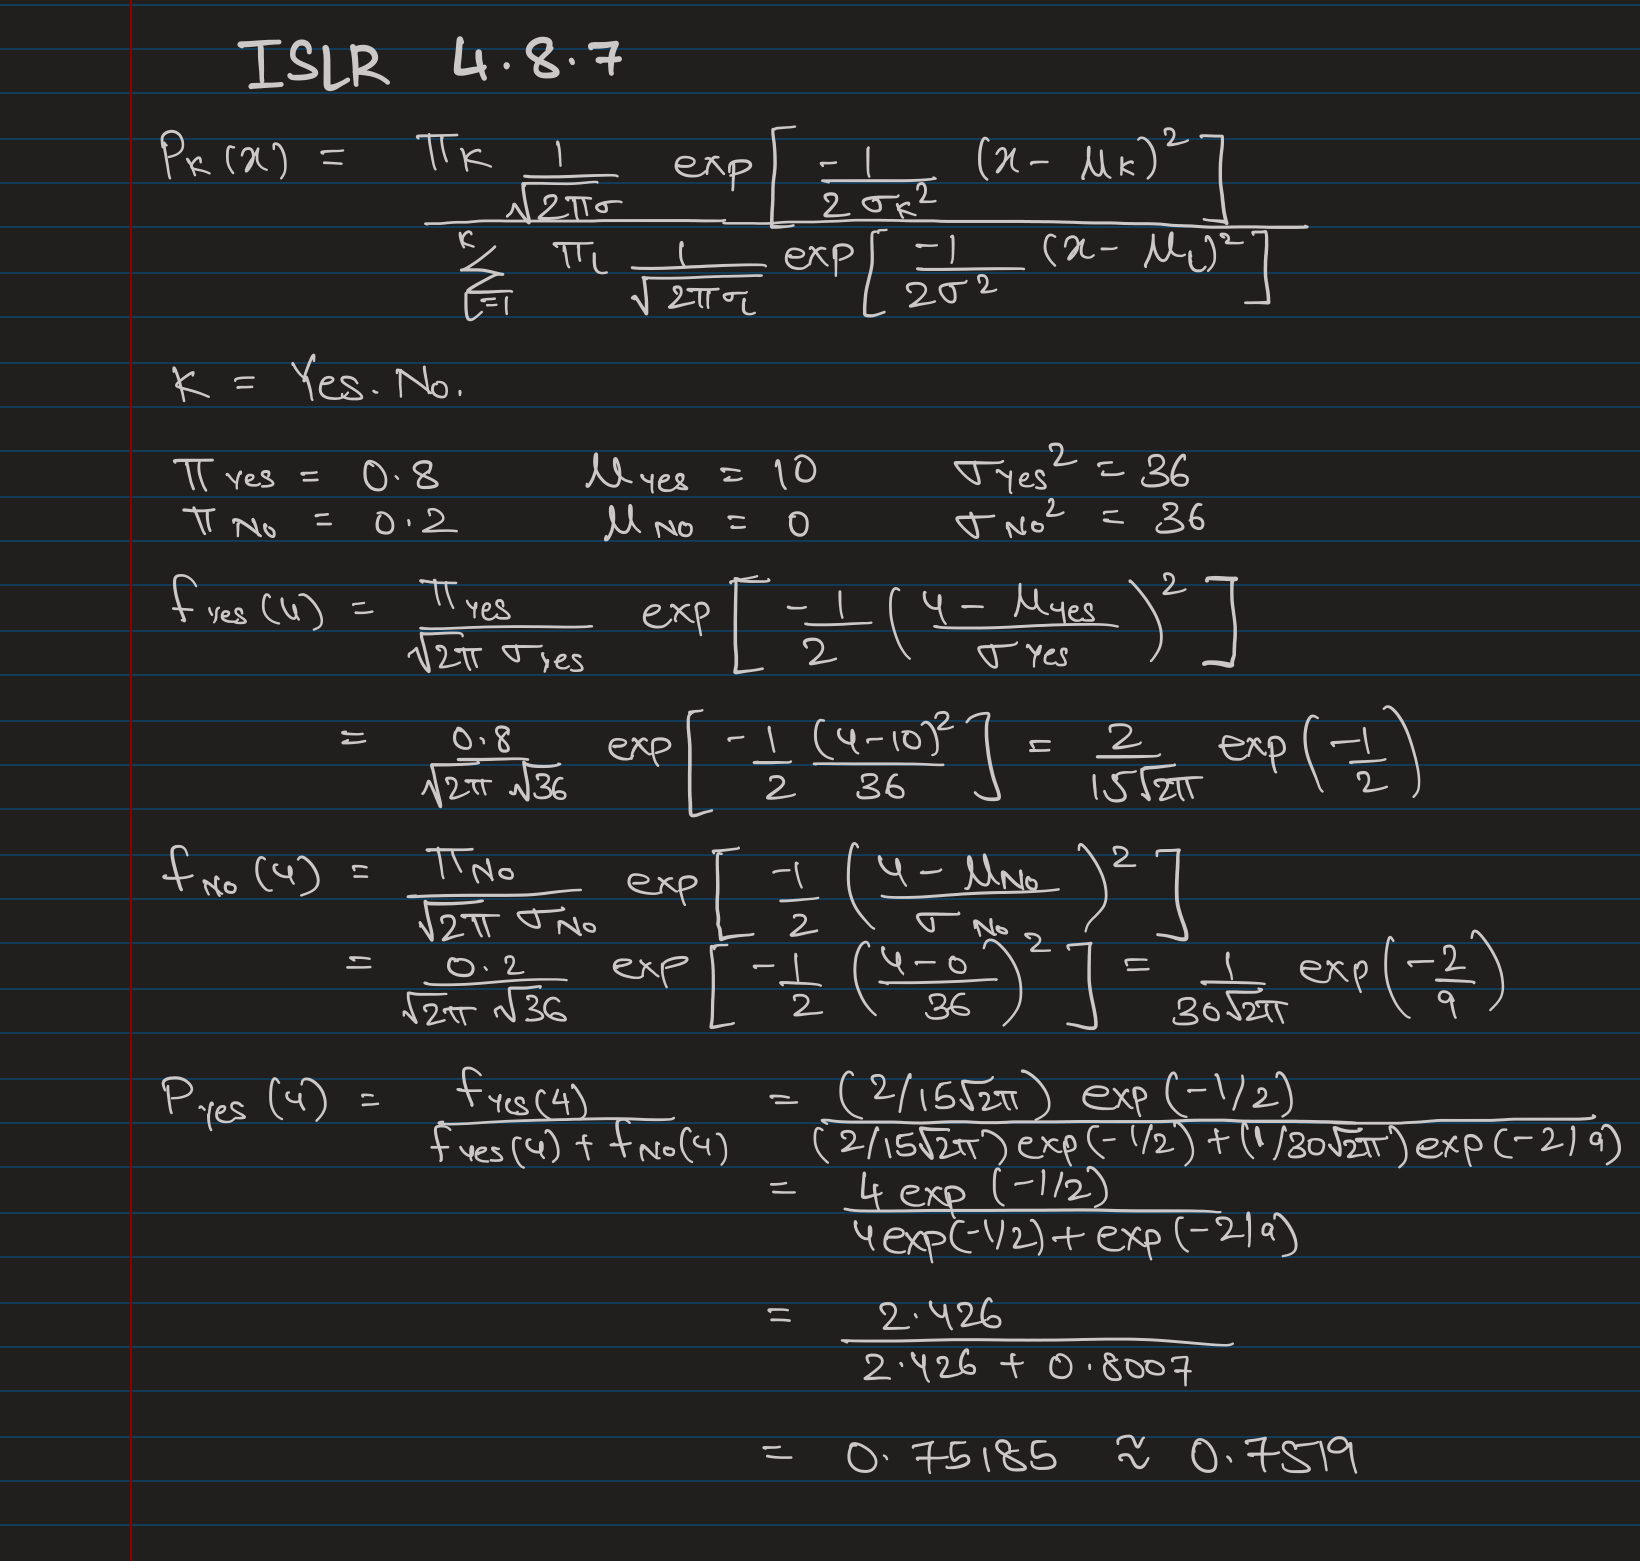 ISLR 4.8.7
P_K(x) = π_K 1/√(2πσ) exp[-1/(2σ_K²) (x - μ_K)²]
Σ_{l=1}^{K} π_l 1/√(2πσ_l) exp[-1/(2σ²) (x - μ_l)²]
K = Yes. No.
π_Yes = 0.8 μ_yes = 10 σ_yes² = 36
π_No = 0.2 μ_No = 0 σ_No² = 36
f_yes(4) = π_yes/(√2π σ_yes) exp[-1/2 ((4 - μ_yes)/σ_yes)²]
= 0.8/(√2π √36) exp[-1/2 (4-10)²/36] = 2/(15√2π) exp(-1/2)
f_No(4) = π_No/(√2π σ_No) exp[-1/2 ((4 - μ_No)/σ_No)²]
= 0.2/(√2π √36) exp[-1/2 ((4-0)/36)²] = 1/(30√2π) exp(-2/9)
P_yes(4) = f_yes(4)/(f_yes(4) + f_No(4)) = (2/15√2π) exp(-1/2)/((2/15√2π) exp(-1/2) + (1/30√2π) exp(-2/9))
= 4 exp(-1/2)/(4 exp(-1/2) + exp(-2/9))
= 2.426/(2.426 + 0.8007)
= 0.75185 ≈ 0.7519